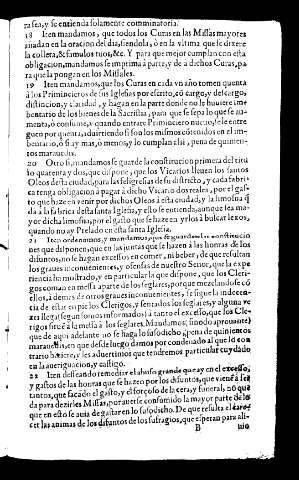 ra sea, y se entienda solamente comminatoria.
18 Iten mandamos, que todos los Curas en las Missas mayores
añadan en la oracion del dia, siendola, ò en la vltima que se dixere
la collecta, & famulos tuos, &c. Y para que mejor cumplan con esta
obligacion, mandamos se imprima à parte, y de à dichos Curas, pa
ra que la pongan en los Missales.
19 Iten mandamos, que los Curas en cada vn año tomen quenta
à los Primincieros de sus Iglesias por escrito, cõ cargo, y descargo,
distincion, y claridad, y hagan en la parte donde no le huuiere im-
bentario de los bienes de la Sacristia, para que se sepa lo que se au-
menta, ò consume, y quando entrare Priminciero nueuo, se le entre
guen por quenta, aduirtiendo si son los mismos cõtenidos en el im-
bentario, ò si ay mas, ò menos, y lo cumplan assi, pena de quinien-
tos marauedis.
20 Otrosi, mandamos se guarde la constitucion primera del titu
lo quarenta y dos, que dispone, que los Vicarios lleuen los santos
Oleos desta ciudad, para las feligresias de su districto, y cada fabri-
ca tenga obligacion à pagar à dicho Vicario dos reales, por el gas-
to que haze en venir por dichos Oleos à esta ciudad, y la limosna q̃
dà à la fabrica desta santa Iglesia, y esto se entienda, aunque sea ma-
yor dicha limosna, por el gasto que se haze en yrlos à bulcar lexos,
quando no ay Prelado en esta santa Iglesia.
21 Iten ordenamos, y mandamos, que se guarden las constitucio
nes que disponen, que en las juntas que se hazen à las honras de los
difuntos, no se hagan excessos en comer, ni beber, de que resultan
los graues inconuenientes, y ofensas de nuestro Señor, que la expe
riencia ha mostrado, y en particular la que dispone, que los Cleri-
gos coman en messa aparte de los seglares, porque mezclandose cõ
ellos, à demàs de otros graues inconuenientes, se sigue la indecen-
cia de estar en pie los Clerigos, y sentados los seglares, y alguna ve
zes llega (segun somos informados) à tanto el excesso, que los Cle-
rigos siruẽ à la messa à los seglares. Mandamos, siendo apremiante
que de aqui adelante no se haga lo susodicho, pena de quinientos
marauedis, en que desde luego damos por condenado al que lo con
trario hiziere, y les aduertimos que tendremos particular cuydado
en la aueriguacion, y castigo.
22 Iten desseando remediar el abuso grande que ay en el excesso,
y gastos de las honras que se hazen por los difuntos, que viene à ser
tantos, que sacado el gasto, y destroço de la cera, y funeral, no que
da para dezirles Missas, por auerse consumido la mayor parte de lo
que en esto se auia de gastar en lo susodicho. De que resulta el care-
cer las animas de los difuntos de los sufragios, que esperan para ali-
B